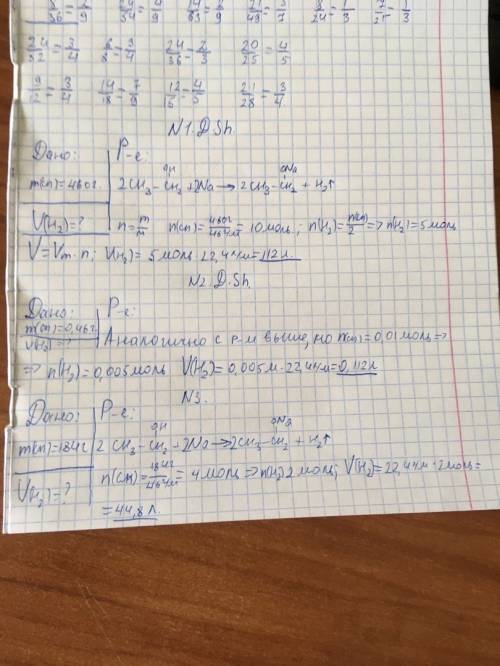 8/36 = 2/9 24/54 = 4/9 14/63 = 2/9 21/49 = 3/7 8/24 = 1/3 7/21 = 1/3
24/32 = 3/4 6/8 = 3/4 24/36 = 2/3 20/25 = 4/5
9/12 = 3/4 14/18 = 7/9 12/15 = 4/5 21/28 = 3/4
N1. D.Sh.
Дано: Р-е:
OH ONa
m(сп)=460г. 2CH3-CH2+2Na→2CH3-CH2+H2↑
V(H2)=? n=m/M n(сп)=460г/46г/м=10моль; n(H2)=n(сп)/2=>n(H2)=5моль
V=Vm·n; V(H2)=5моль·22,4л/м=112л.
N2. D.Sh.
Дано: Р-е:
m(сп)=0,46г.
V(H2)=? Аналогично с р-м выше, но n(сп)=0,01моль=>
=> n(H2)=0,005моль V(H2)=0,005м·22,4л/м=0,112л
N3.
Дано: Р-е:
OH ONa
m(сп)=184г 2CH3-CH2+2Na→2CH3-CH2+H2↑
V(H2)=? n(сп)=184г/46г/м=4моль=>n(H2)=2моль; V(H2)=22,4л/м·2моль=
=44,8л.